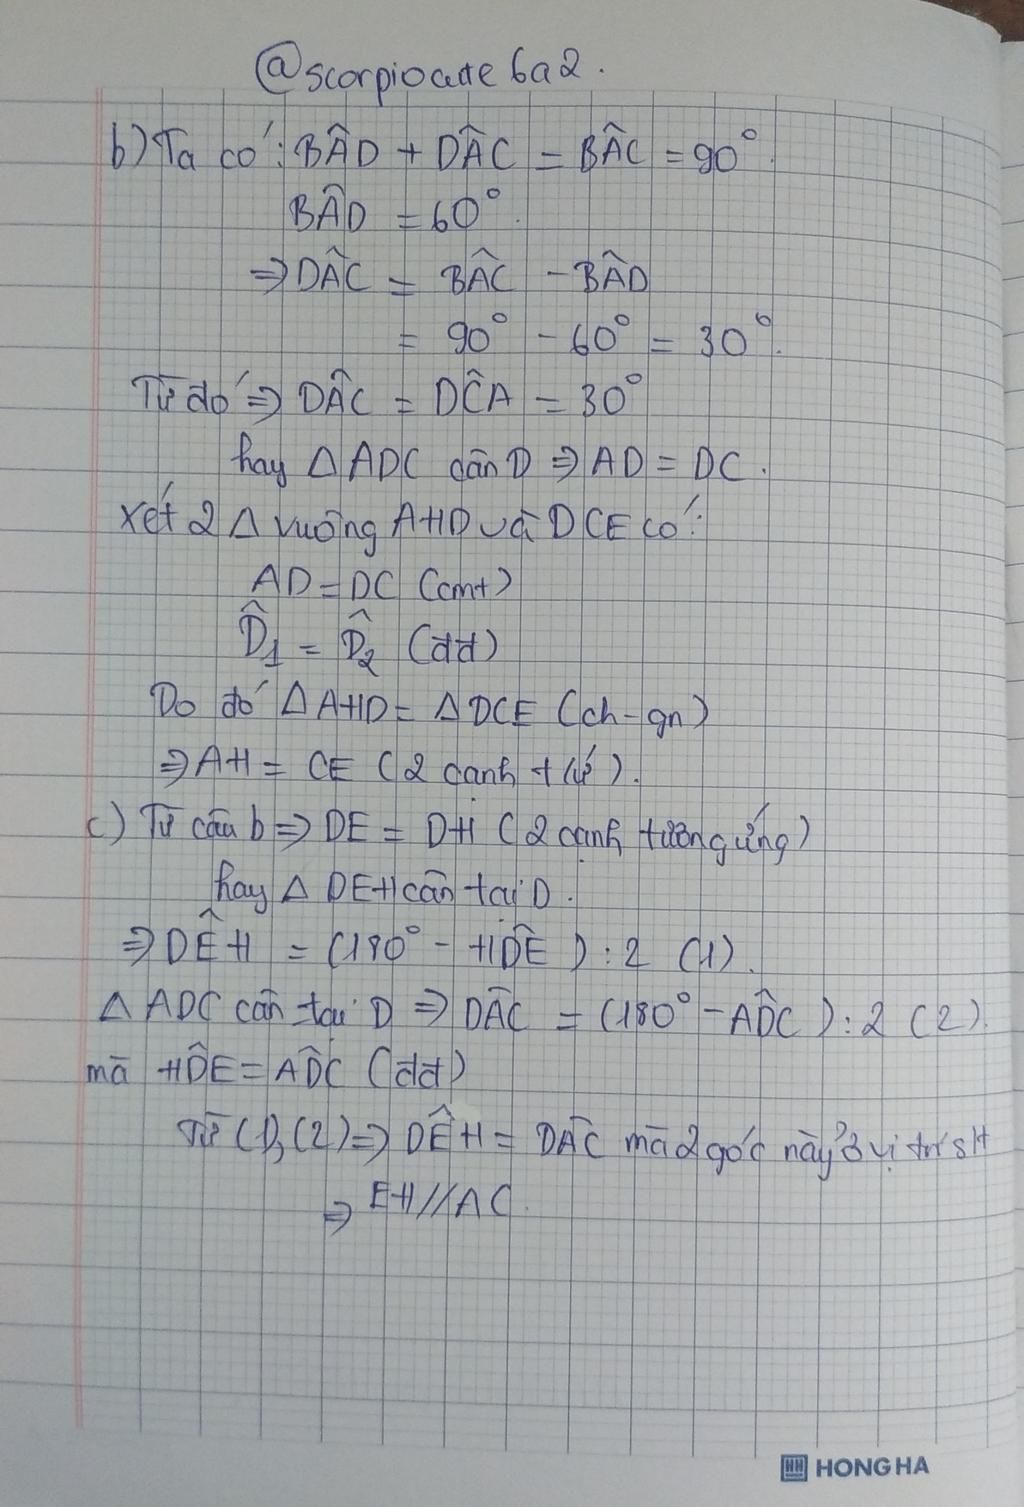 @scorpiocute6a2.
b) Ta có: BÂD + DÂC = BÂC = 90°.
BÂD = 60°.
⇒ DÂC = BÂC - BÂD
= 90° - 60° = 30°.
Từ đó ⇒ DÂC = DĈA = 30°
hay △ ADC cân D ⇒ AD = DC.
Xét 2 △ vuông AHD và DCE có:
AD = DC (cmt)
D̂1 = D̂2 (đđ)
Do đó △ AHD = △ DCE (ch-gn)
⇒ AH = CE (2 cạnh t/ứ).
c) Từ câu b ⇒ DE = DH (2 cạnh tương ứng)
hay △ DEH cân tại D.
⇒ DÊH = (180° - HD̂E) : 2 (1).
△ ADC cân tại D ⇒ DÂC = (180° - AD̂C) : 2 (2).
mà HD̂E = AD̂C (đđ)
Từ (1), (2) ⇒ DÊH = DÂC mà 2 góc này ở vị trí slt
⇒ EH // AC.
HONG HA